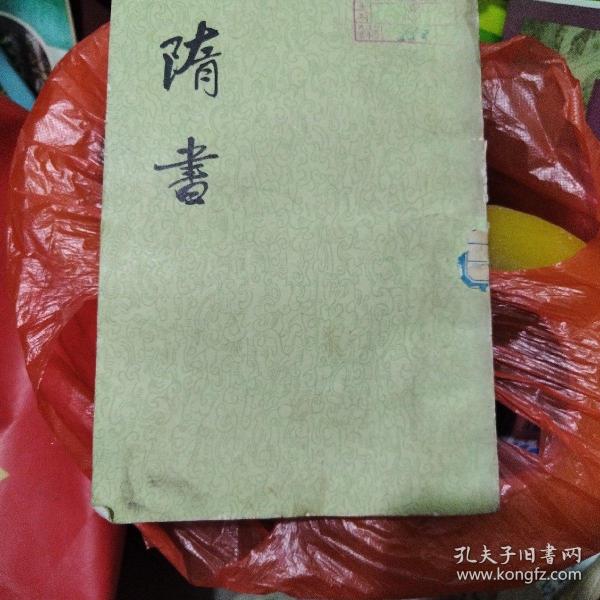 隋書
孔夫子旧書网
www.kongfz.com